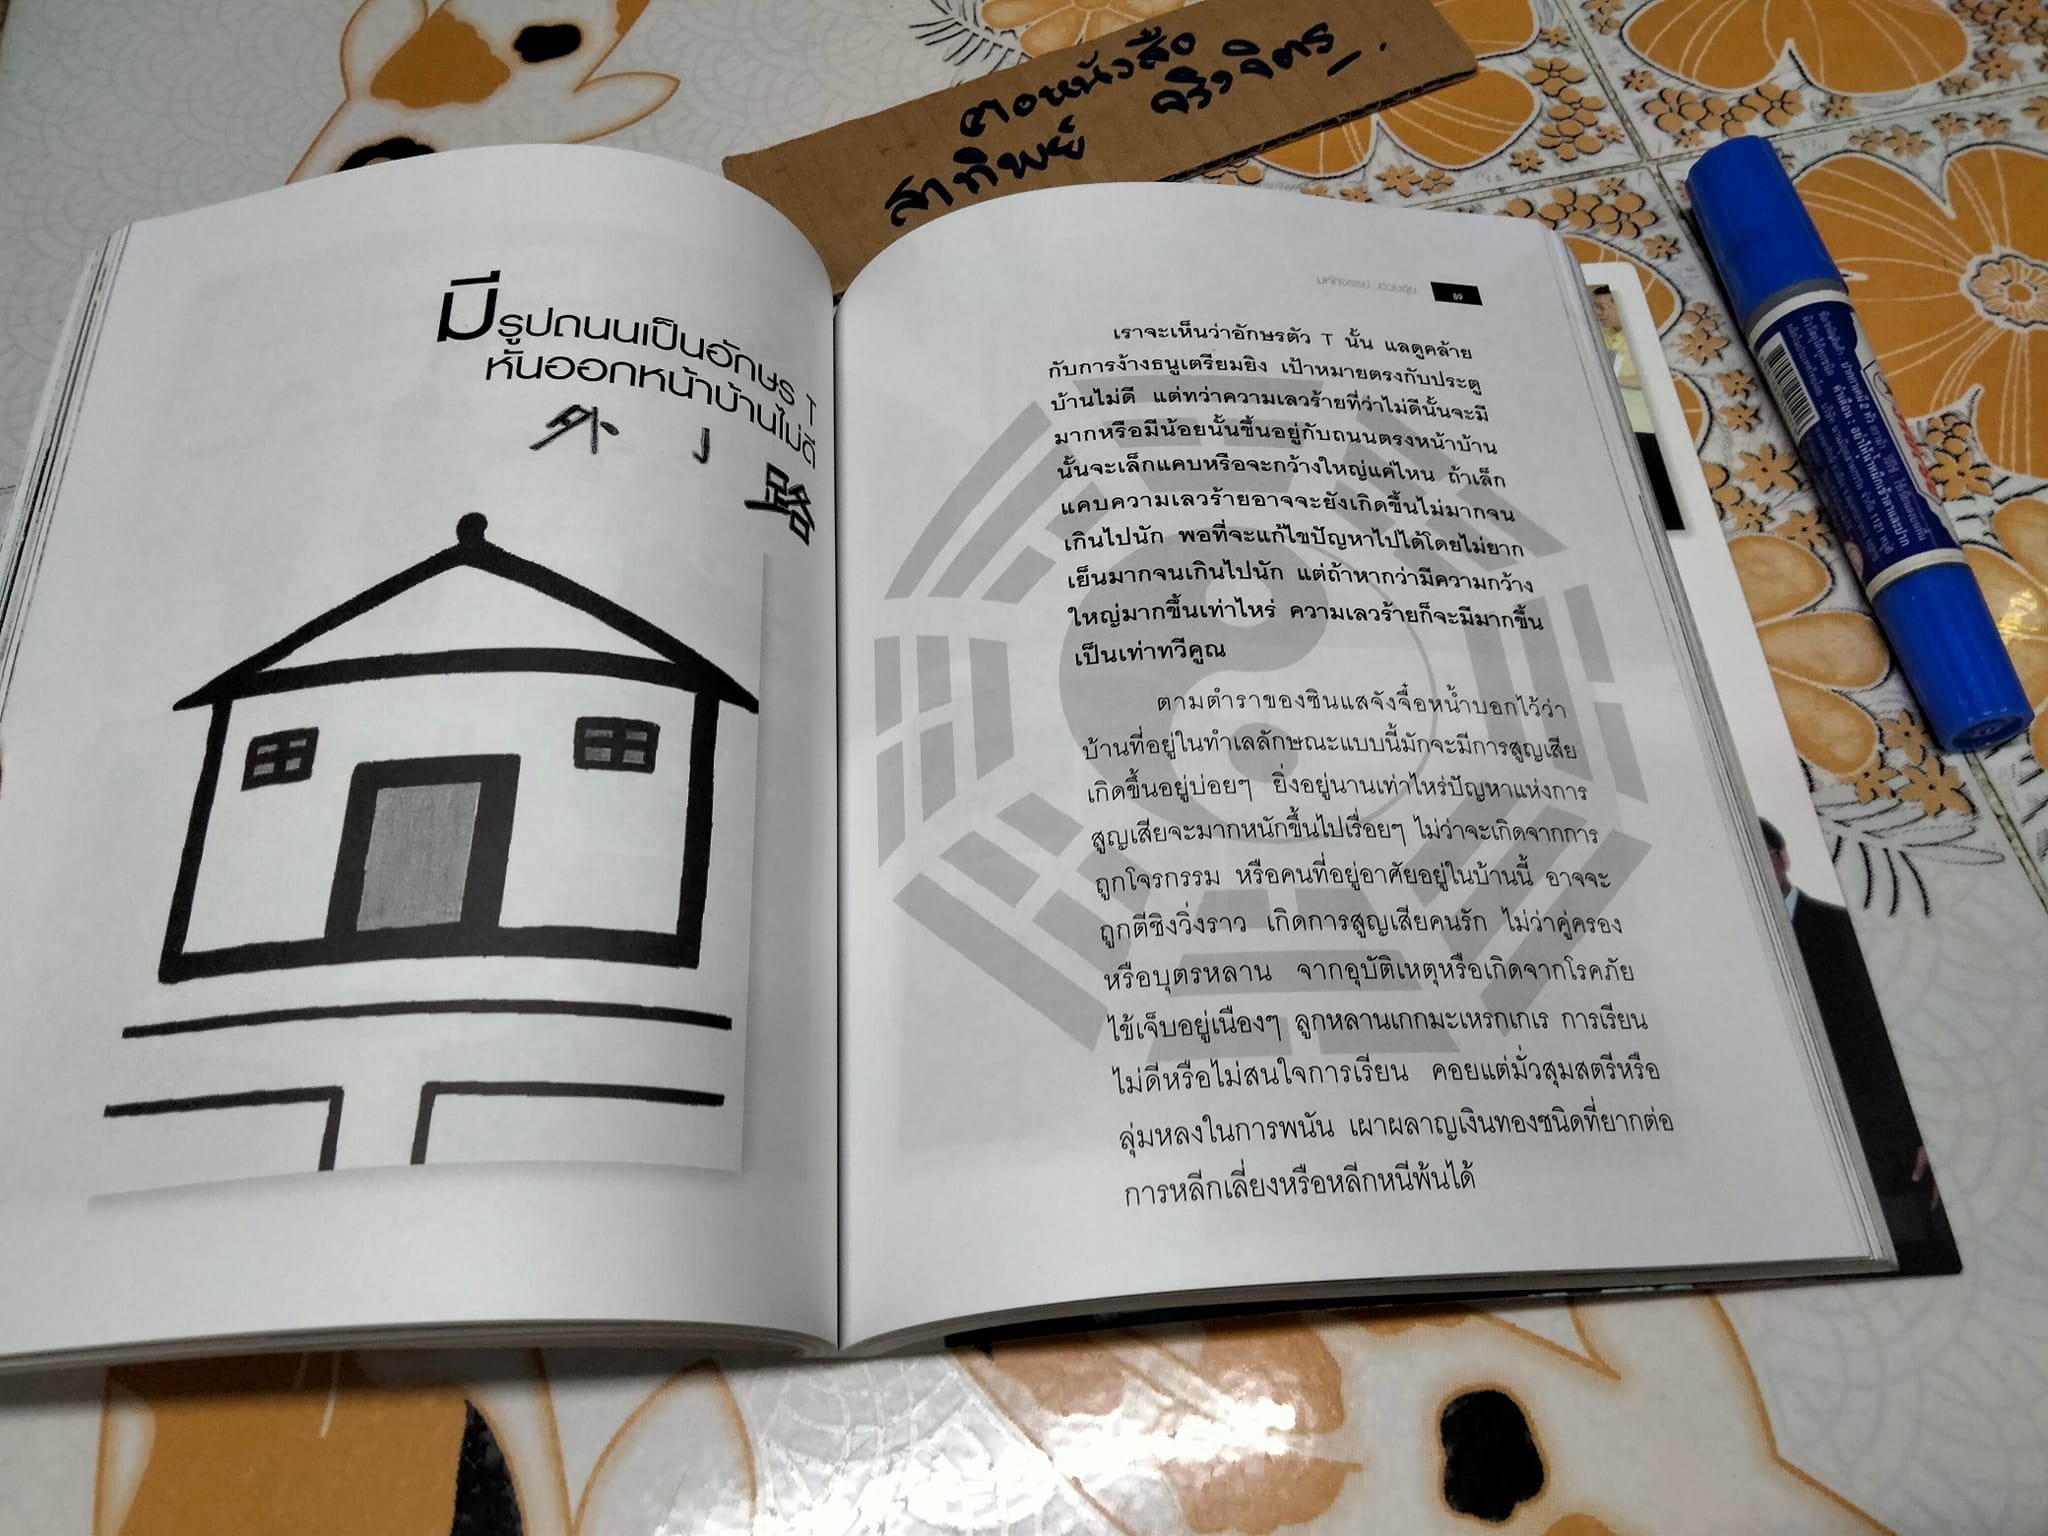 ตอหนังสือ
สาทิพย์ จริงจิตร
มีรูปถนนเป็นอักษร T
หันออกหน้าบ้านไม่ดี
外 丁 路
89
เราจะเห็นว่าอักษรตัว T นั้น แลดูคล้าย
กับการง้างธนูเตรียมยิง เป้าหมายตรงกับประตู
บ้านไม่ดี แต่ทว่าความเลวร้ายที่ว่าไม่ดีนั้นจะมี
มากหรือมีน้อยนั้นขึ้นอยู่กับถนนตรงหน้าบ้าน
นั้นจะเล็กแคบหรือจะกว้างใหญ่แค่ไหน ถ้าเล็ก
แคบความเลวร้ายอาจจะยังเกิดขึ้นไม่มากจน
เกินไปนัก พอที่จะแก้ไขปัญหาไปได้โดยไม่ยาก
เย็นมากจนเกินไปนัก แต่ถ้าหากว่ามีความกว้าง
ใหญ่มากขึ้นเท่าไหร่ ความเลวร้ายก็จะมีมากขึ้น
เป็นเท่าทวีคูณ
ตามตำราของซินแสจังจื๋อหน้ำบอกไว้ว่า
บ้านที่อยู่ในทำเลลักษณะแบบนี้มักจะมีการสูญเสีย
เกิดขึ้นอยู่บ่อยๆ ยิ่งอยู่นานเท่าไหร่ปัญหาแห่งการ
สูญเสียจะมากหนักขึ้นไปเรื่อยๆ ไม่ว่าจะเกิดจากการ
ถูกโจรกรรม หรือคนที่อยู่อาศัยอยู่ในบ้านนี้ อาจจะ
ถูกตีชิงวิ่งราว เกิดการสูญเสียคนรัก ไม่ว่าคู่ครอง
หรือบุตรหลาน จากอุบัติเหตุหรือเกิดจากโรคภัย
ไข้เจ็บอยู่เนืองๆ ลูกหลานเกกมะเหรกเกเร การเรียน
ไม่ดีหรือไม่สนใจการเรียน คอยแต่มั่วสุมสตรีหรือ
ลุ่มหลงในการพนัน เผาผลาญเงินทองชนิดที่ยากต่อ
การหลีกเลี่ยงหรือหลีกหนีพ้นได้